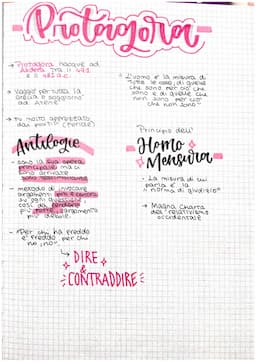 Protagora
Protagora nacque ad
Abdera tra il 491
e il 481 a.c.
viaggiò per tutta la
Grecia e soggiornò
ad Atene
Fu molto apprezzato
dai politici (Pericle)
L'uomo è la misura di
tutte le cose, di quelle
che sono per ciò che
sono e di quelle che
non sono per ciò
che non sono
Antilogie
sono la sua opera
principale ma ci
sono arrivate
solo
metodo di invocare
argomenti pro e contro
su ogni questione,
così da rendere
più forte l'argomento
più debole
"Per chi ha freddo
è freddo, per chi
no, no"
DIRE
&
CONTRADDIRE
Principio dell'
Homo
Mensura
La misura di cui
parla è la
norma di giudizio
Magna Charta
del relativismo
occidentale